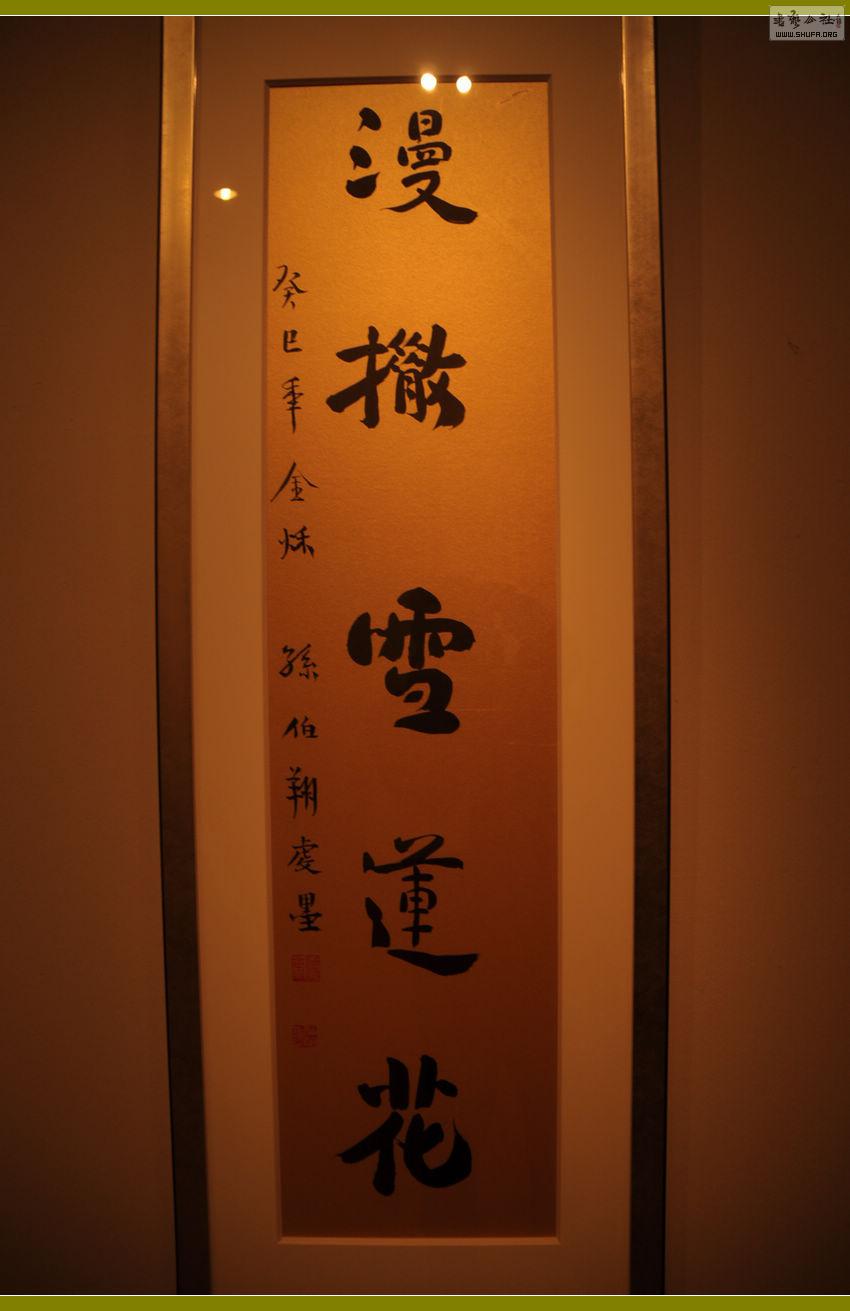 漫撒雪蓮花
癸巳年金秌 孫伯翔虔墨
WWW.SHUFA.ORG